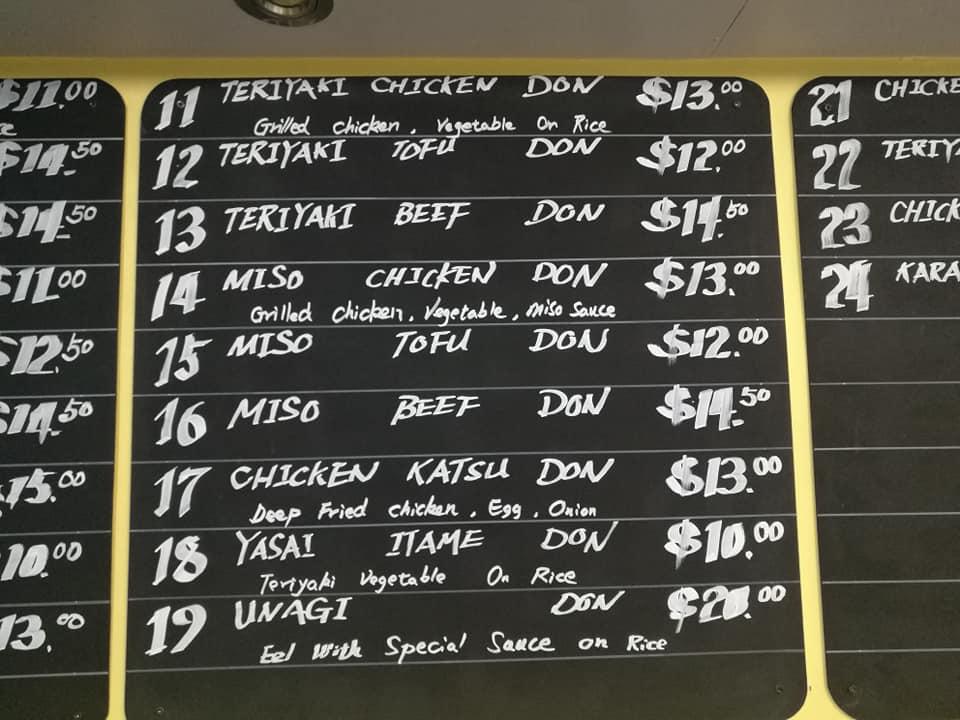 $11.00
$14.50
$14.50
$11.00
$12.50
$14.50
$15.00
10.00
13.00
11 TERIYAKI CHICKEN DON $13.00
Grilled chicken, Vegetable On Rice
12 TERIYAKI TOFU DON $12.00
13 TERIYAKI BEEF DON $14.50
14 MISO CHICKEN DON $13.00
Grilled chicken, Vegetable, Miso Sauce
15 MISO TOFU DON $12.00
16 MISO BEEF DON $14.50
17 CHICKEN KATSU DON $13.00
Deep Fried chicken, Egg, Onion
18 YASAI ITAME DON $10.00
Teriyaki Vegetable On Rice
19 UNAGI DON
Eel With Special Sauce on Rice
21 CHICKE
22 TERIYA
23 CHICK
24 KARA